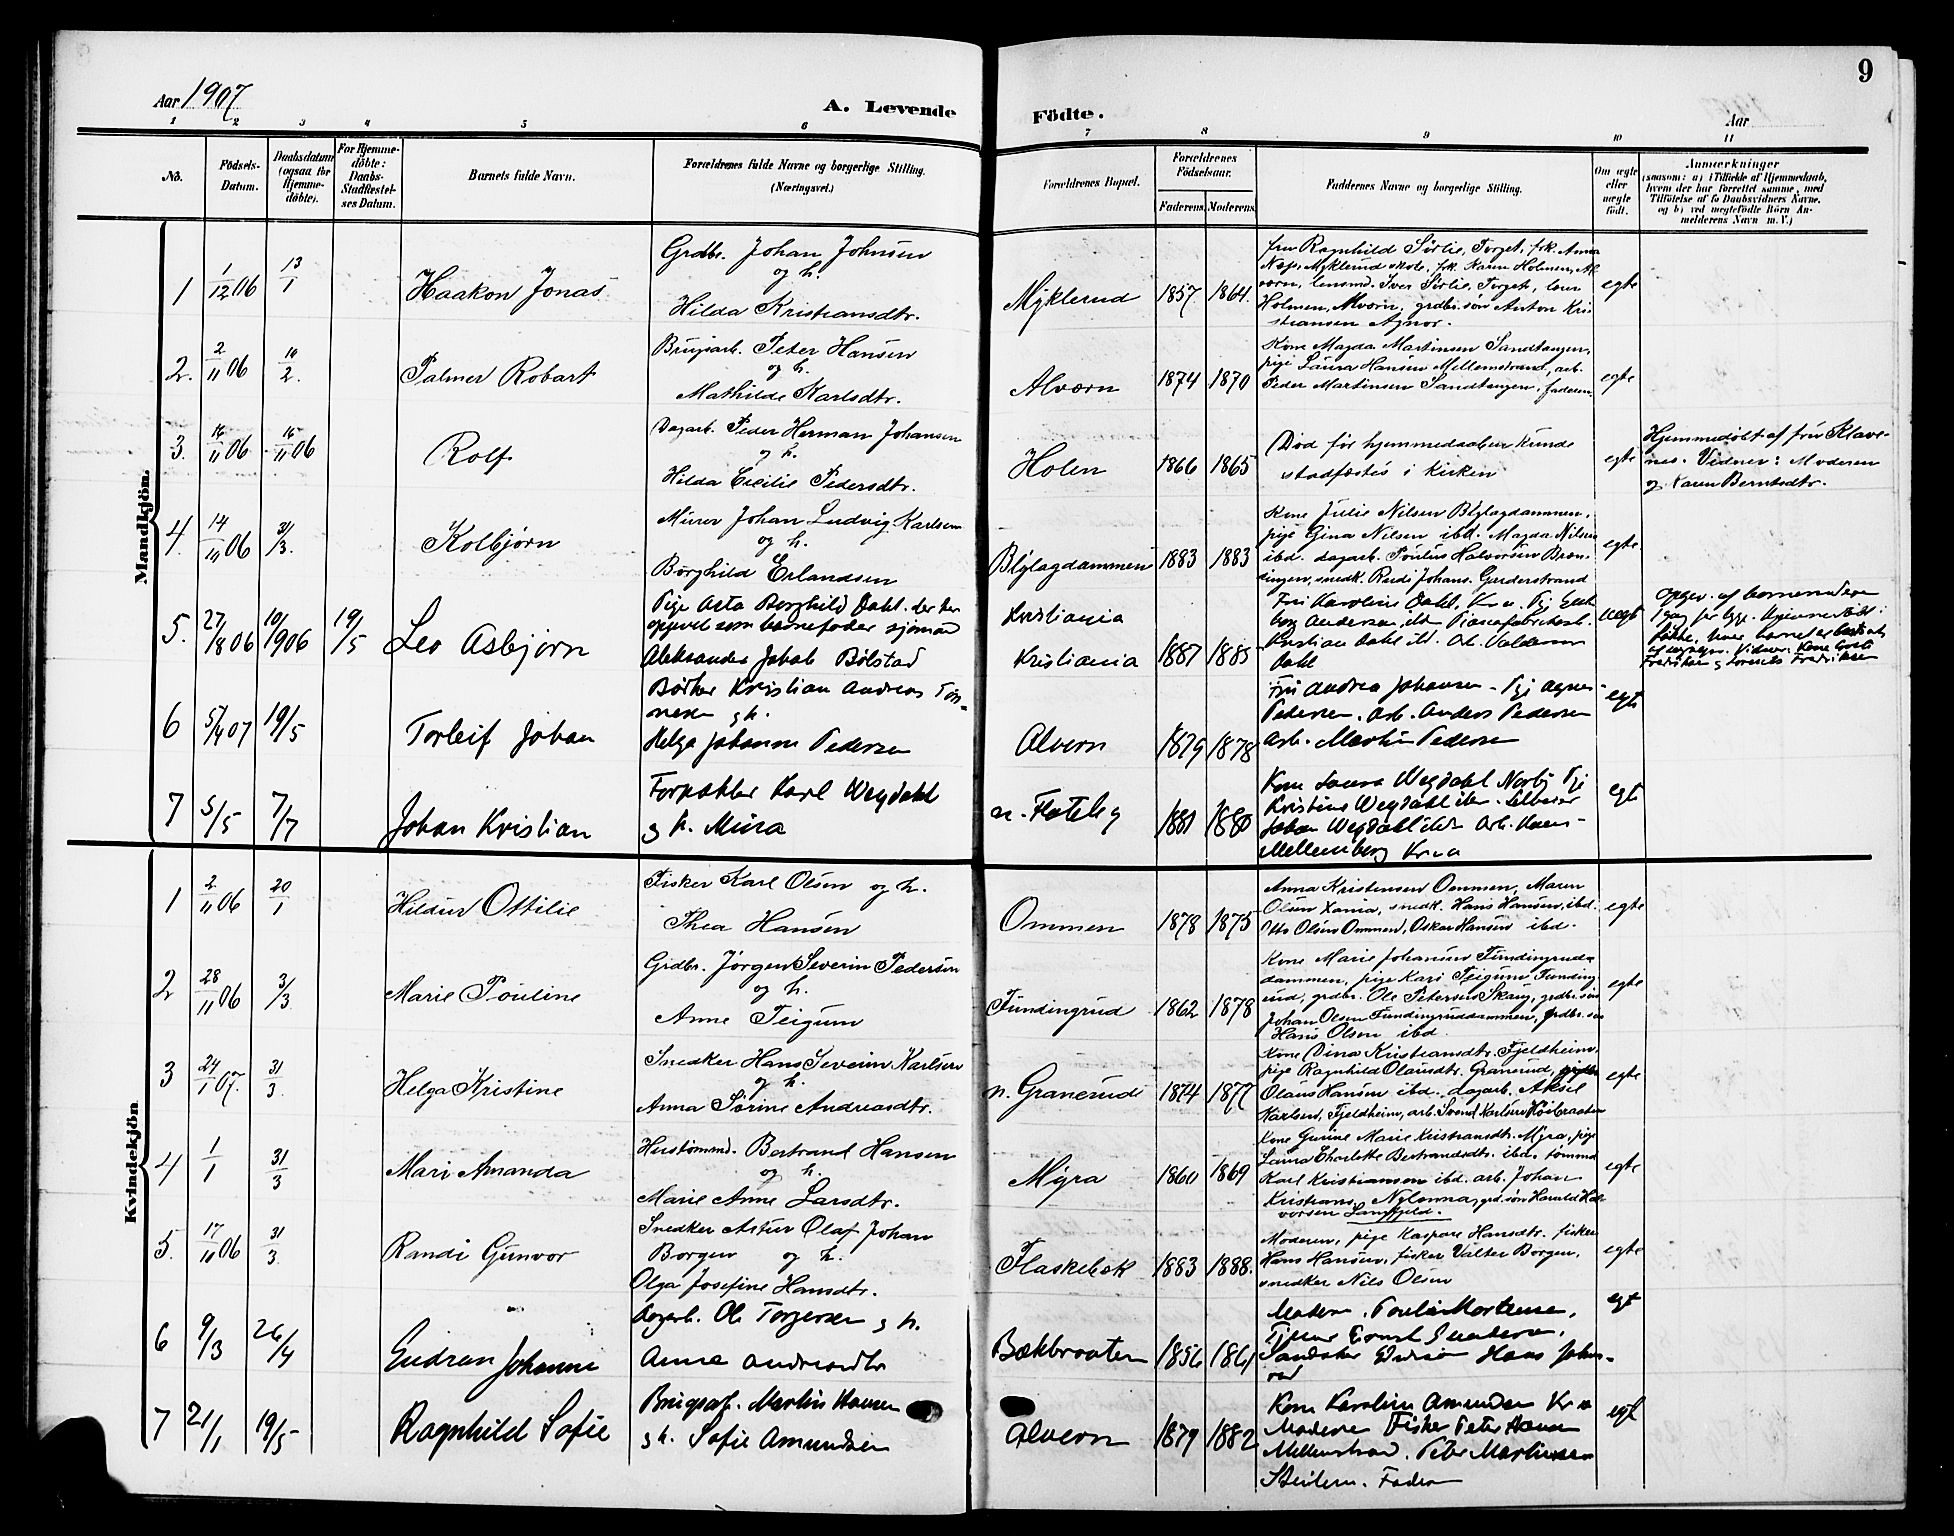 9
Aar 1907
A. Levende
Födte.
Aar
1 2 3 4 5 6 7 8 9 10 11
No.
Födsels-
Datum.
Daabsdatum
(ogsaa for
Hjemme-
döbte).
For Hjemme-
döbte:
Daabs-
Stadfæstel-
ses Datum.
Barnets fulde Navn.
Forældrenes fulde Navne og borgerlige Stilling.
(Næringsvei.)
Forældrenes Bopæl.
Forældrenes
Födselsaar.
Faderens. Moderens.
Faddernes Navne og borgerlige Stilling.
Om ægte
eller
uægte
født.
Anmærkninger
(saasom: a) i Tilfælde af Hjemmedaab,
hvem der har forrettet samme, med
Tilföielse af to Daabsvidners Navne,
og b) ved uægtefödte Börn An-
melderens Navn m. V.)
Mandkjön.
1 1/12 06 13/1
Haakon Jonas
Grdbr. Johan Johnsen
og h.
Hilda Kristiansdtr.
Myklerud 1857 1864.
fru Ragnhild Sørlie, Torget, frk. Anna
Næs, Myklerud skole, frk. Karen Holmen, Al
værn, lensmd. Iver Sørlie, Torget,
Holmen, Alværn, grdbr. søn Anton Kri
stiansen Agnor.
egte
2. 2/11 06 10/2.
Palmer Robart
Brugsarb. Peter Hansen
og h.
Mathilde Karlsdtr.
Alværn 1874 1870
Kone Magda Martinsen Sandtangen,
pige Laura Hansen Mellemstrand, arb.
Peder Martinsen Sandtangen, faderen
egte
3. 16/11 06 16/11 06
Rolf
Dagarb. Peder Herman Johansen
og h.
Hilda Cecilie Pedersdtr.
Holen 1866 1865
Død før hjemmedaaben kunde
stadfæstes i kirken
egte
Hjemmedøbt af fru Klave-
nes. Vidner: Moderen
og Karen Berntsdtr.
4. 14/11 06 31/3.
Kolbjørn
Murer Johan Ludvig Karlsen
og h.
Borghild Erlandsen
Blylagdammen 1883 1883
Kone Julie Nilsen Blylagdammen,
pige Gina Nilsen ibd. Magda Nilsen
ibd. dagarb. Paulus Halvorsen
snedk. Rudi Johans. Garderstrand
egte
5. 27/8 06 10/1906 19/5
Leo Asbjørn
Pige Asta Borghild Dahl. der har
opgivet som barnefader sjømand
Aleksander Jakob Bölstad
Kristiania
Kristiania 1887 1885
Fru Karoline Dahl, Kra.
Andersen,
Kristian Dahl Valdemar
Dahl
uegt
6 5/4 07 19/5
Torleif Johan
Bödker Kristian Andreas Tön
nesen g h.
Helga Johanne Pedersen
Alvern 1879 1878
Fru Andrea Johansen - Pige Agnes
Pedersen. Arb. Anders Pedersen
Arb. Martin Pedersen
egte
7 5/5 7/7
Johan Kristian
Forpakter Karl Wegdahl
g h. Mina
n. Flateby 1881 1880
Kone Laura Wegdahl Pige
Kristine Wegdahl
Johan Wegdahl Arb.
Mellemberg Kra
egt
Kvindekjön
1 2/11 06 20/1
Hildur Ottilie
Fisker Karl Olsen og h.
Thea Hansen
Ommen 1878 1875
Anna Kristensen Ommen, Maren
Olsen Xania, snedk. Hans Hansen, ibd.
Otto Olsen Ommen, Oskar Hansen ibd.
egte
2 28/11 06 3/3
Marie Pouline
Grdbr. Jörgen Severin Pedersen
og h.
Anne Teigum
Fundingrud 1862 1878
Kone Marie Johansen Fundingruds
dammen, pige Kari Teigum Funding
rud, grdbr. Ole Petersen Skaug, grdbr. søn
Johan Olsen Fundingruddammen, grdbr. søn
Hans Olsen ibd.
egte
3 24/1 07. 31/3.
Helga Kristine
Snedker Hans Severin Karlsen
og h.
Anna Sørine Andreasdtr.
n. Granerud 1874 1877
Kone Dina Kristiansdtr. Fjeldheim,
pige Ragnhild Olausdtr. Granerud,
Olaus Hansen ibd. dagarb. Aksel
Karlsen, Fjeldheim, arb. Svend Karlsen Høibraaten
egte
4 1/1 31/3
Mari Amanda
Hustømmd. Bertrand Hansen
og h.
Marie Anne Larsdtr.
Myra 1860 1869
Kone Gurine Marie Kristiansdtr. Myra, pige
Laura Charlotte Bertrandsdtr. ibd. tømmd
Karl Kristiansen ibd. arb. Johan
Kristians. Nylænna, grd. søn Harald Hal
vorsen Langfjeld.
egte
5. 17/11 06 31/3.
Randi Gunvor
Snedker Astur Olaf Johan
Borgen og h.
Olga Josefine Hansdtr.
Flaskebæk 1883 1888.
Moderen, pige Kaspara Hansdtr. fisker
Hans Hansen, fisker Valter Borgen,
snedker Nils Olsen
egte
6 9/3 26/4
Gudrun Johanne
Dagarb. Ole Torgersen g h.
Anne Andreasdtr
Bækbraaten 1856 1861
Moderen. Paula Mortensen,
egt
7 21/1 19/5
Ragnhild Sofie
Brugsarb. Martin Hansen
g h. Sofie Amundsen
Alvern 1879 1882
Kone Karoline Amundsen Kra
Moderen Fisker Peter Hansen
Mellemstrand. Peter Martinsen
Steilene. Faderen
egt